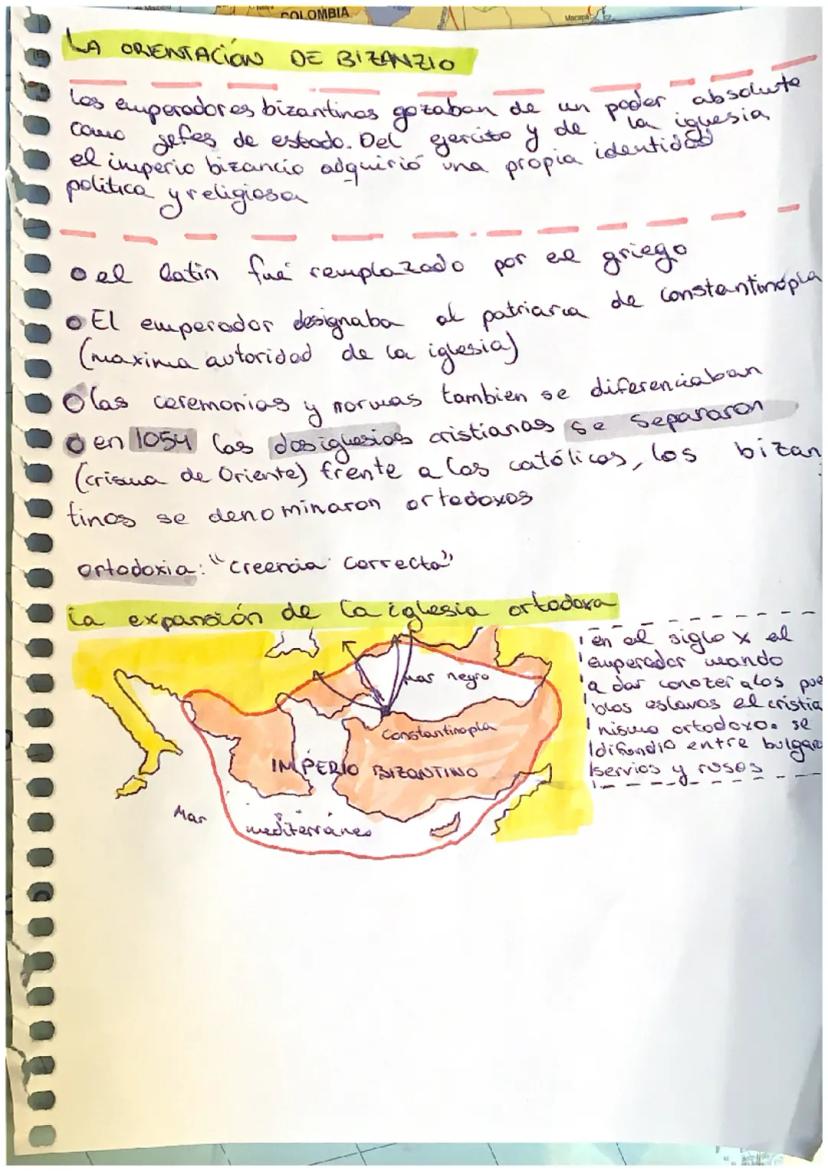 COLOMBIA
Macapá
LA ORIENTACIÓN DE BIZANZIO
los emperadores bizantinos gozaban de un poder absoluto
como gefes de estado. Del ejercito y de la iglesia
el imperio bizancio adquirió una propia identidad
politica y religiosa
el latin fué remplazado por el griego
El emperador designaba al patriarca de constantinopla
(maxima autoridad de la iglesia)
las ceremonias y normas tambien se diferenciaban
en 1054 las dos iglesias cristianas se separaron
(crisma de Oriente) frente a los católicos, los bizan
tinos se denominaron ortodoxos
ortodoxia: "creencia correcta"
la expansión de la iglesia ortodoxa
en el siglo x el
emperador mando
a dar conozer a los pue
blos eslavos el cristia
nismo ortodoxo. se
difundio entre bulgar
servios y rusos
Mar negro
Constantinopla
IMPERIO BIZANTINO
Mar mediterráneo